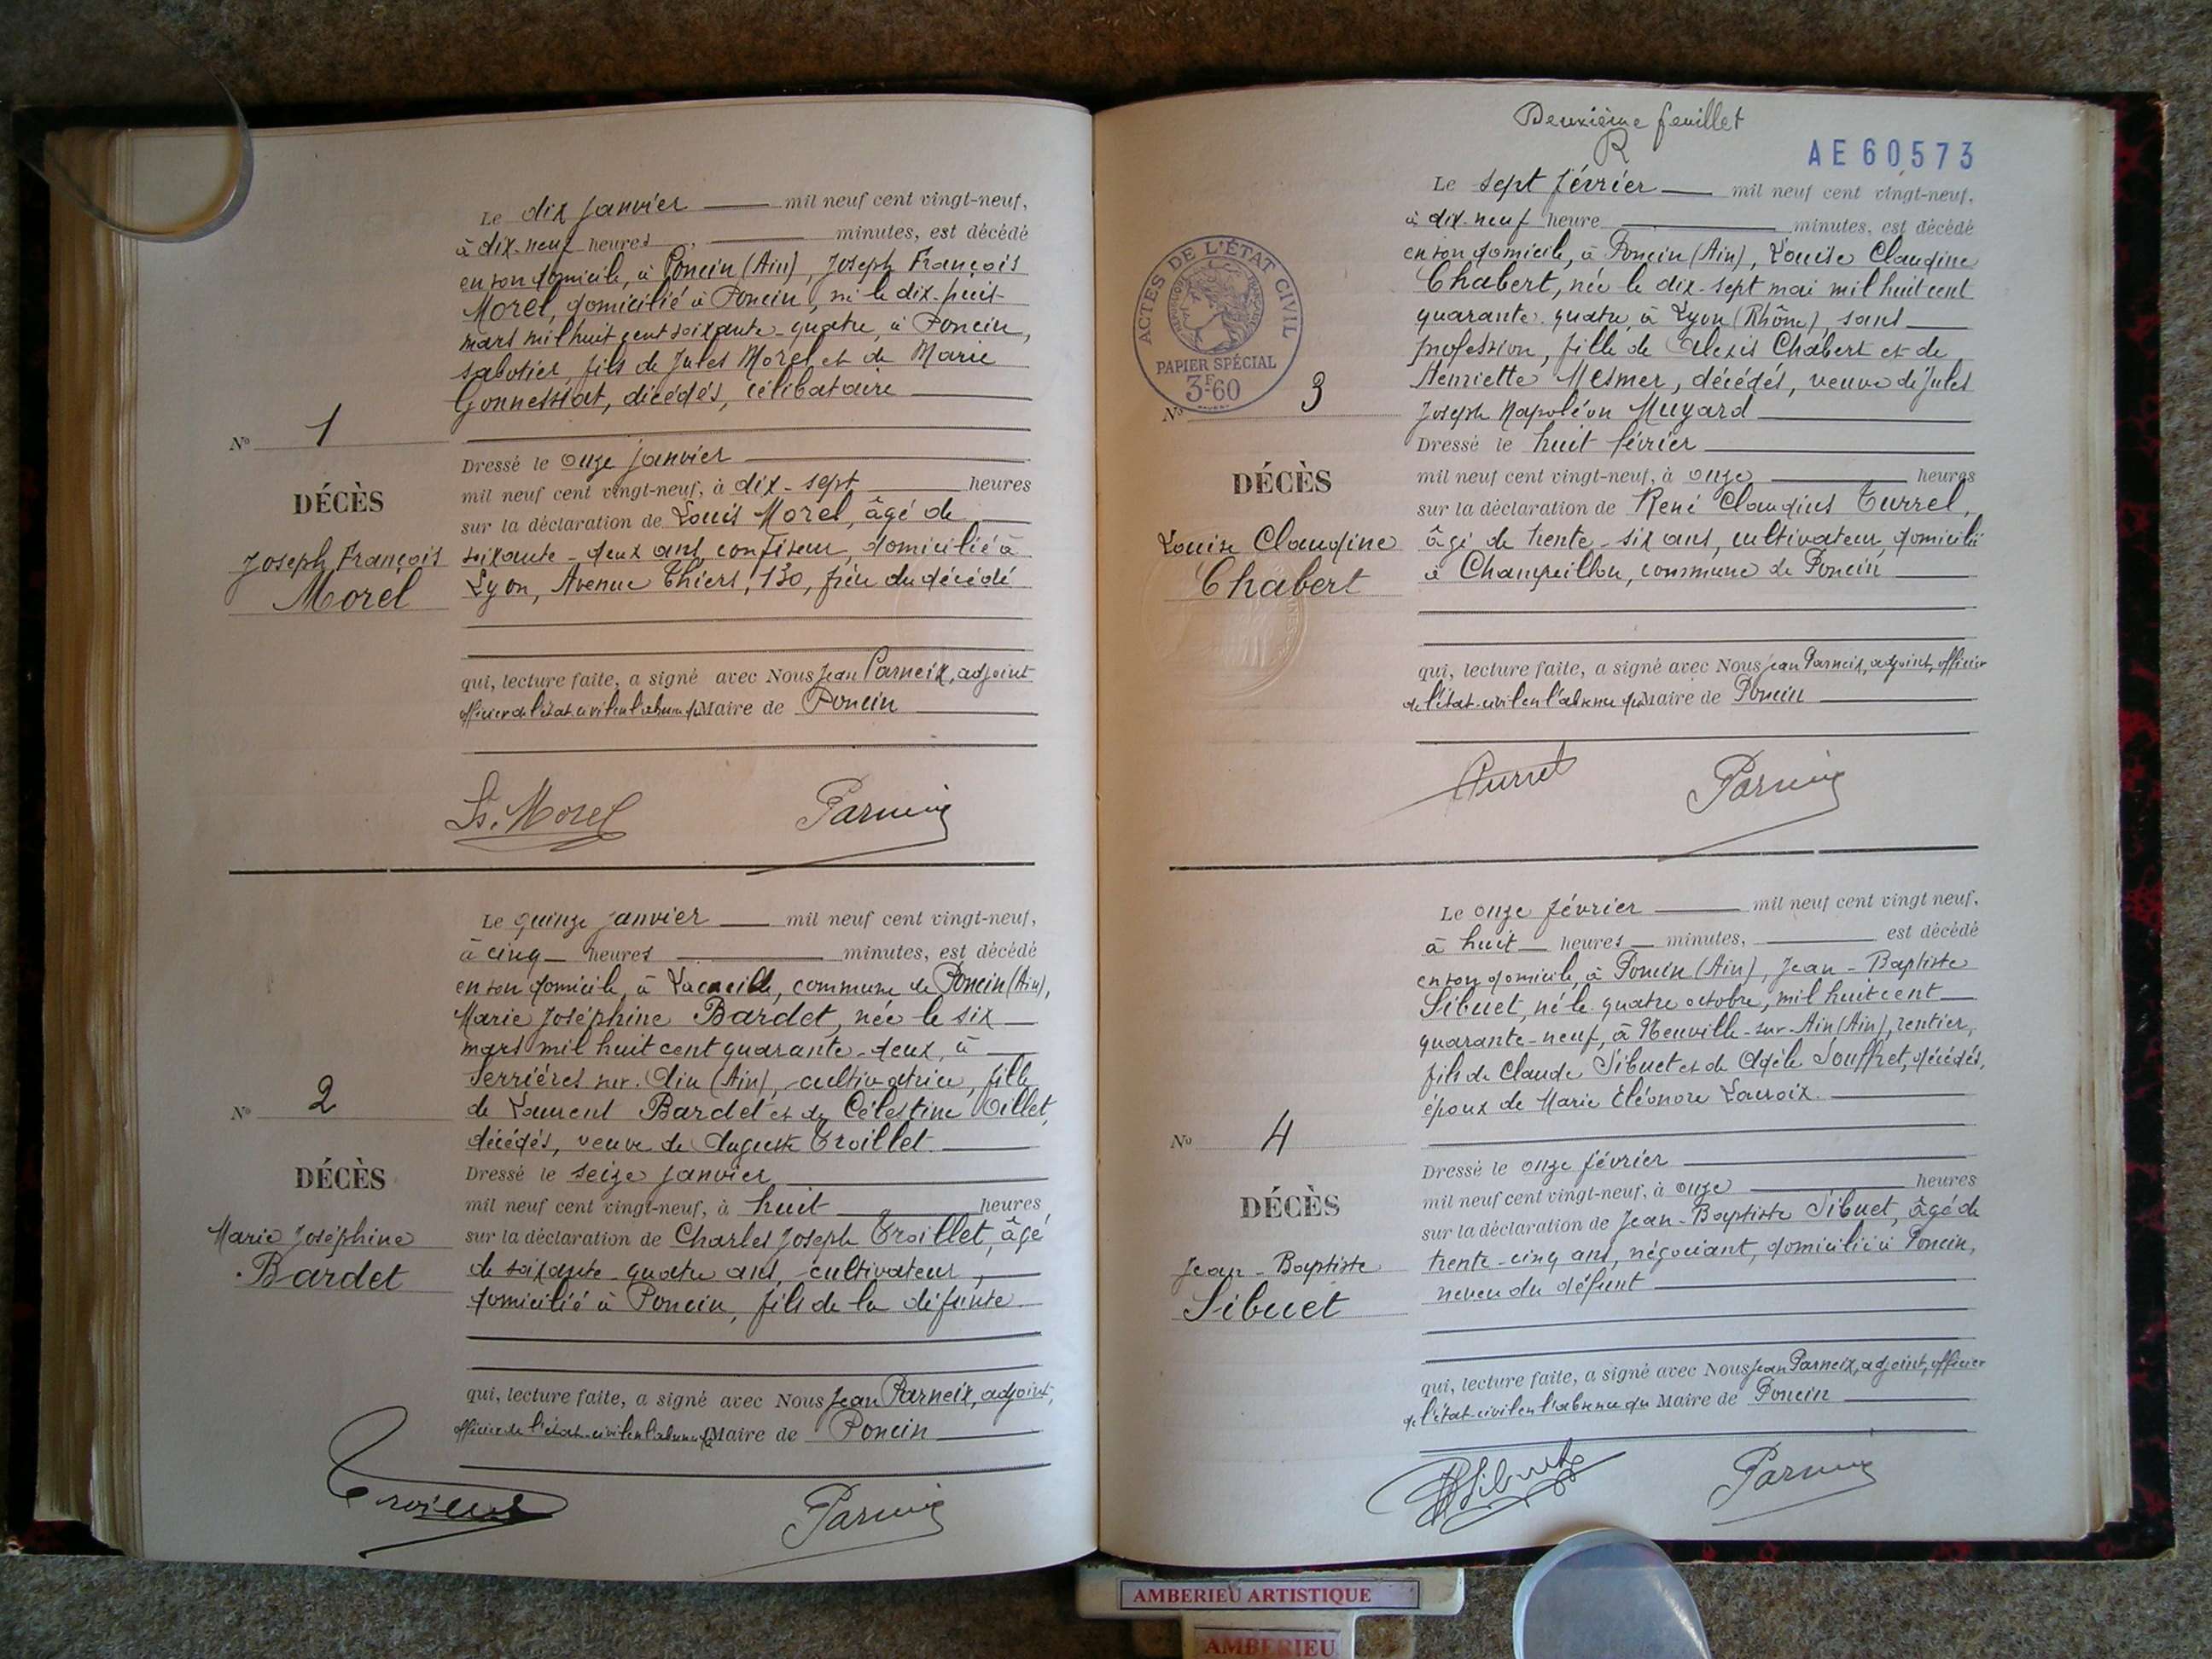 Le dix janvier mil neuf cent vingt-neuf,
à dix-neuf heures, minutes, est décédé
en son domicile, à Poncin (Ain), Joseph François
Morel, domicilié à Poncin, né le dix-huit
mars mil huit cent soixante-quatre, à Poncin,
sabotier, fils de Jules Morel et de Marie
Gonnessiat, décédés, célibataire
No 1
Dressé le onze janvier
mil neuf cent vingt-neuf, à dix-sept heures
DÉCÈS
sur la déclaration de Louis Morel, âgé de
Joseph François
Morel
soixante-deux ans, confiseur, domicilié à
Lyon, Avenue Thiers, 130, frère du décédé
qui, lecture faite, a signé avec Nous Jean Parneix, adjoint
officier de l'état-civil en l'absence du Maire de Poncin
Ls. Morel Parneix
Le quinze janvier mil neuf cent vingt-neuf,
à cinq heures minutes, est décédé
en son domicile, à commune de Poncin (Ain),
Marie Joséphine Bardet, née le six
mars mil huit cent quarante-deux, à
Serrières sur-Ain (Ain), cultivatrice, fille
de Laurent Bardet et de Célestine
No 2
décédés, veuve de Auguste Troillet
DÉCÈS
Dressé le seize janvier
mil neuf cent vingt-neuf, à huit heures
Marie Joséphine
Bardet
sur la déclaration de Charles Joseph Troillet, âgé
de soixante-quatre ans, cultivateur,
domicilié à Poncin, fils de la défunte
qui, lecture faite, a signé avec Nous Jean Parneix, adjoint,
officier de l'état-civil en l'absence du Maire de Poncin
Troillet Parneix
Deuxième feuillet
R
AE60573
Le sept février mil neuf cent vingt-neuf,
à dix-neuf heure minutes, est décédé
en son domicile, à Poncin (Ain), Louise Claudine
Chabert, née le dix-sept mai mil huit cent
quarante-quatre, à Lyon (Rhône), sans
profession, fille de Alexis Chabert et de
Henriette Mesmer, décédés, veuve de Jules
Joseph Napoléon Muyard
ACTES DE L'ÉTAT CIVIL
PAPIER SPÉCIAL
3F60
No 3
Dressé le huit février
mil neuf cent vingt-neuf, à onze heures
DÉCÈS
sur la déclaration de René Claudius Turrel,
Louise Claudine
Chabert
âgé de trente-six ans, cultivateur, domicilié
à Champeillon, commune de Poncin
qui, lecture faite, a signé avec Nous Jean Parneix, adjoint, officier
de l'état-civil en l'absence du Maire de Poncin
Turrel Parneix
Le onze février mil neuf cent vingt neuf,
à huit heures minutes, est décédé
en son domicile, à Poncin (Ain), Jean-Baptiste
Sibuet, né le quatre octobre, mil huit cent
quarante-neuf, à Neuville-sur-Ain (Ain), rentier,
fils de Claude Sibuet et de Adèle Souffret, décédés,
époux de Marie Eléonore Lacroix.
No 4
Dressé le onze février
mil neuf cent vingt-neuf, à onze heures
DÉCÈS
sur la déclaration de Jean-Baptiste Sibuet, âgé de
Jean-Baptiste
Sibuet
trente-cinq ans, négociant, domicilié à Poncin,
neveu du défunt
qui, lecture faite, a signé avec Nous Jean Parneix, adjoint, officier
de l'état-civil en l'absence du Maire de Poncin
Sibuet Parneix
AMBERIEU ARTISTIQUE
AMBERIEU